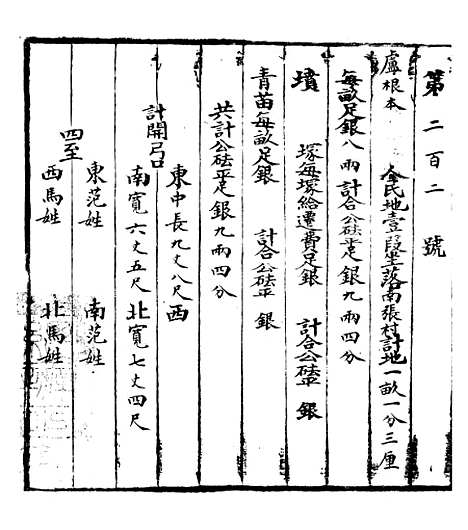 第二百二號
盧根本 全民地壹段坐落南張村計地一畝一分三厘
每畝足銀八兩計合公砝平足銀九兩四分
墳 塚每塚給遷費足銀 計合公砝平 銀
青苗每畝足銀 計合公砝平 銀
共計公砝平足銀九兩四分
計開弓口 東中長九丈八尺西
南寬六丈五尺北寬七丈四尺
四至 東范姓 南范姓
西馬姓 北馬姓